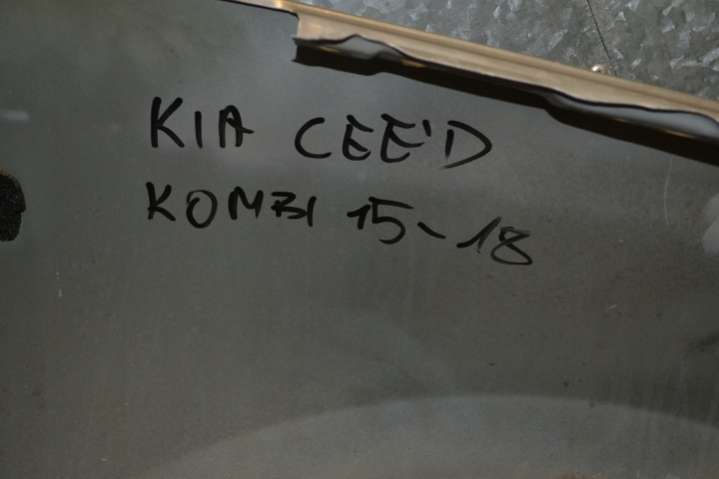 KIA CEE'D
KOMBI 15-18